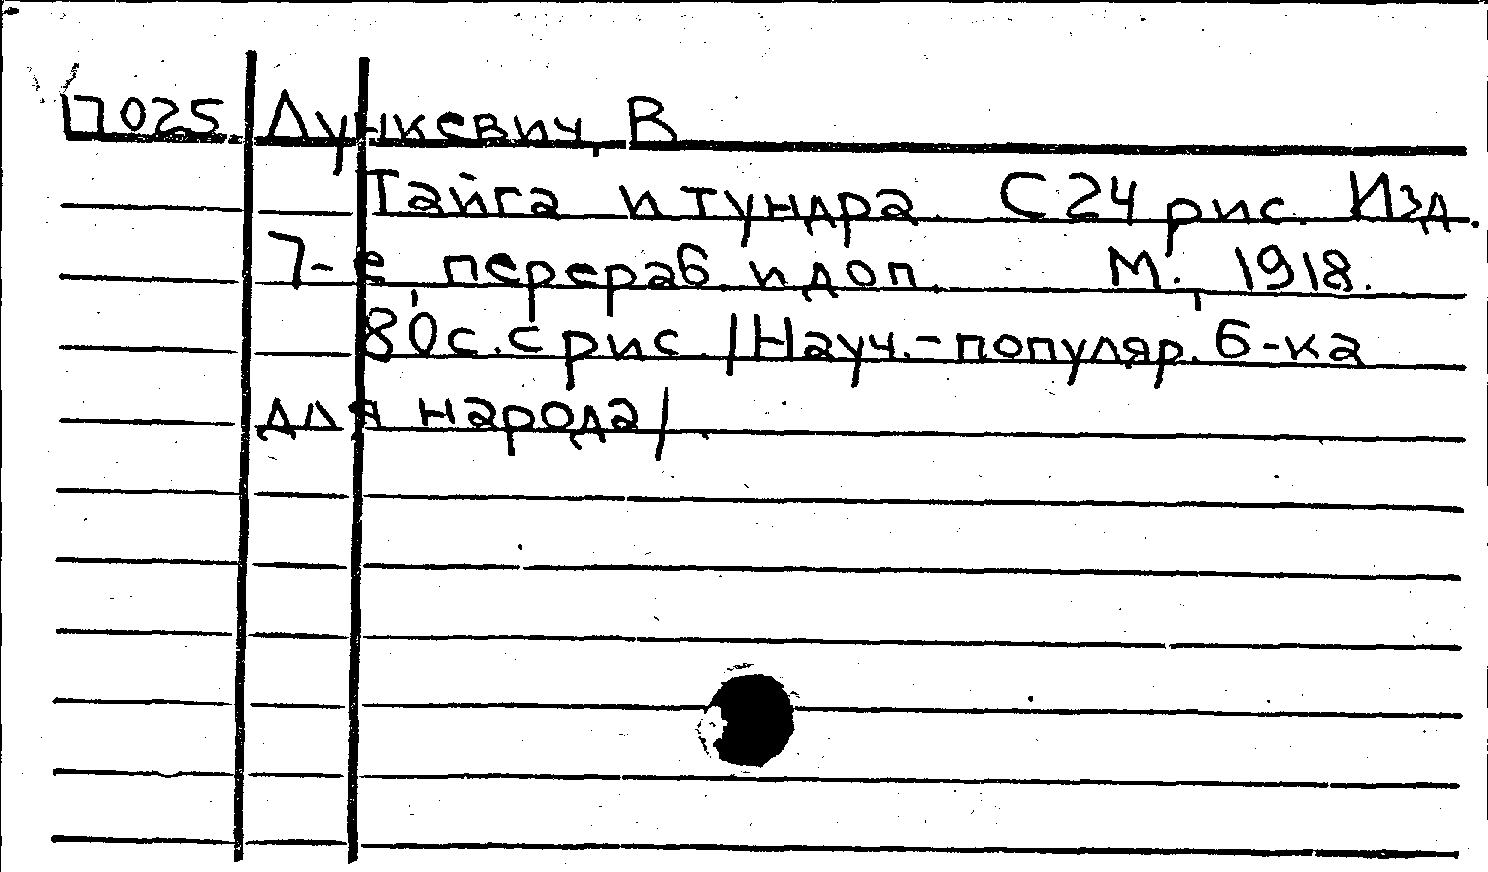 Ц025 Лункевич, В
Тайга и тундра. С 24 рис. Изд.
7-е, перераб. и доп. М., 1918.
80 с. с рис. /Науч.-популяр. б-ка
для народа/.